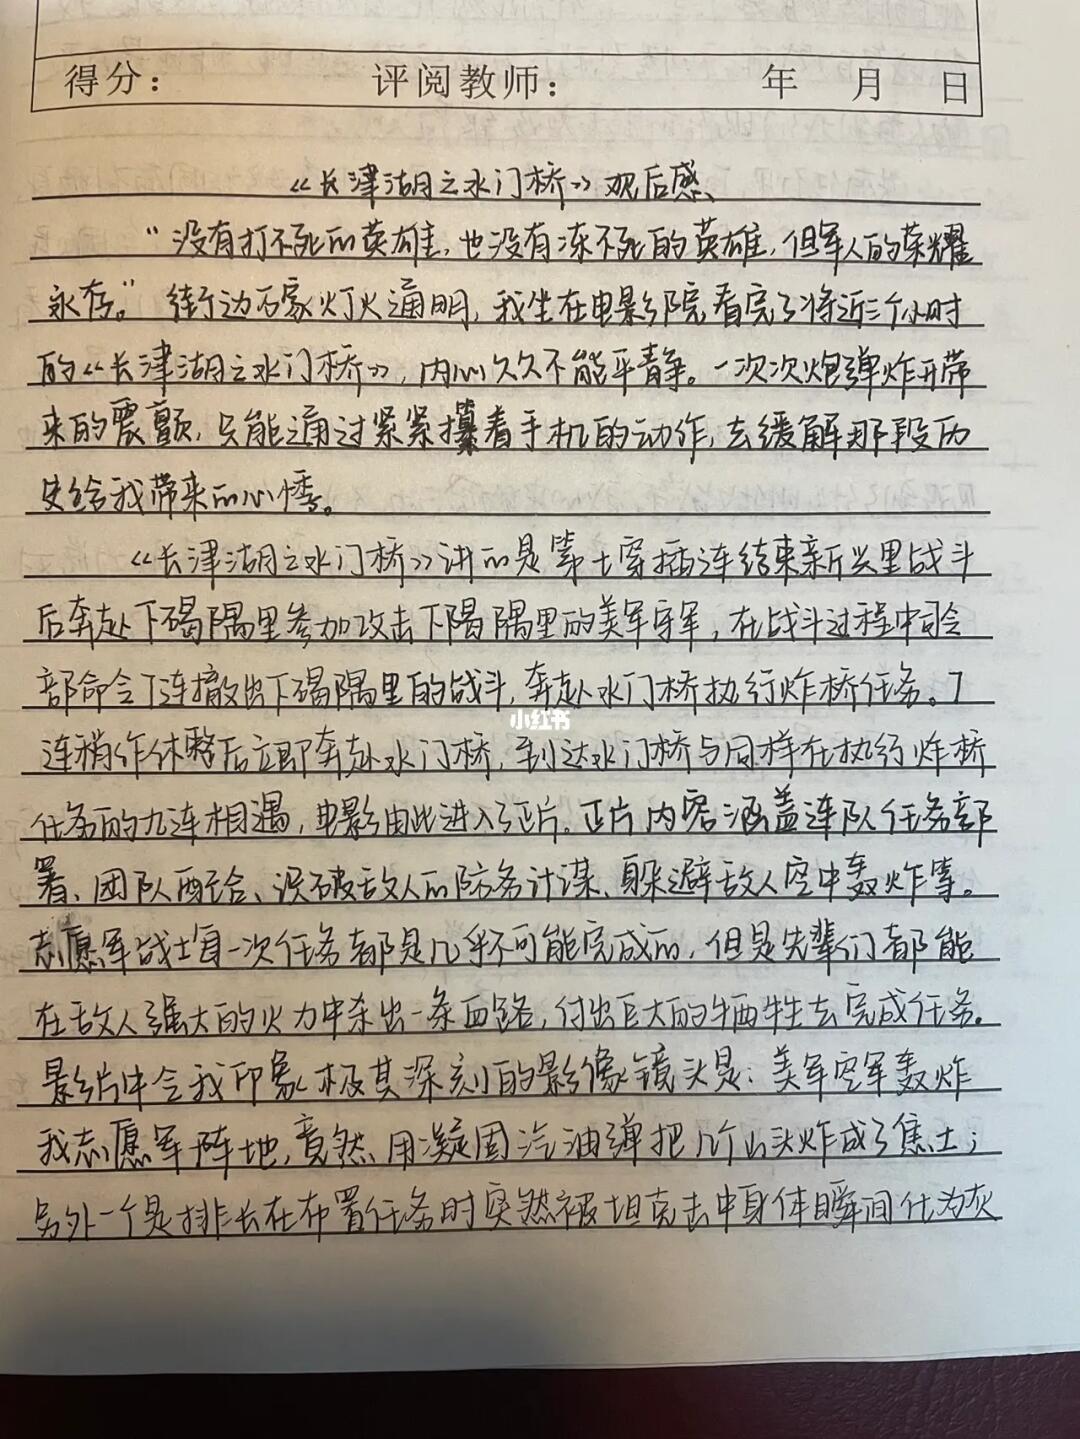 得分： 评阅教师： 年 月 日
《长津湖之水门桥》观后感
“没有打不死的英雄，也没有冻不死的英雄，但军人的荣耀
永存。”街边万家灯火通明，我坐在电影院看完了将近三个小时
的《长津湖之水门桥》，内心久久不能平静。一次次炮弹炸开带
来的震颤，只能通过紧紧攥着手机的动作，去缓解那段历
史给我带来的心悸。
《长津湖之水门桥》讲的是第七穿插连结束新兴里战斗
后奔赴下碣隅里参加攻击下碣隅里的美军守军，在战斗过程中司令
部命令7连撤出下碣隅里的战斗，奔赴水门桥执行炸桥任务。7
连稍作休整后立即奔赴水门桥，到达水门桥与同样在执行炸桥
任务的九连相遇，电影由此进入了正片。正片内容涵盖连队任务部
署、团队配合、识破敌人的防务计谋、躲避敌人空中轰炸等。
志愿军战士每一次任务都是几乎不可能完成的，但是先辈们都能
在敌人强大的火力中杀出一条血路，付出巨大的牺牲去完成任务。
影片中令我印象极其深刻的影像镜头是：美军空军轰炸
我志愿军阵地，竟然用凝固汽油弹把几个山头炸成了焦土；
另外一个是排长在布置任务时突然被坦克击中身体瞬间化为灰
小红书